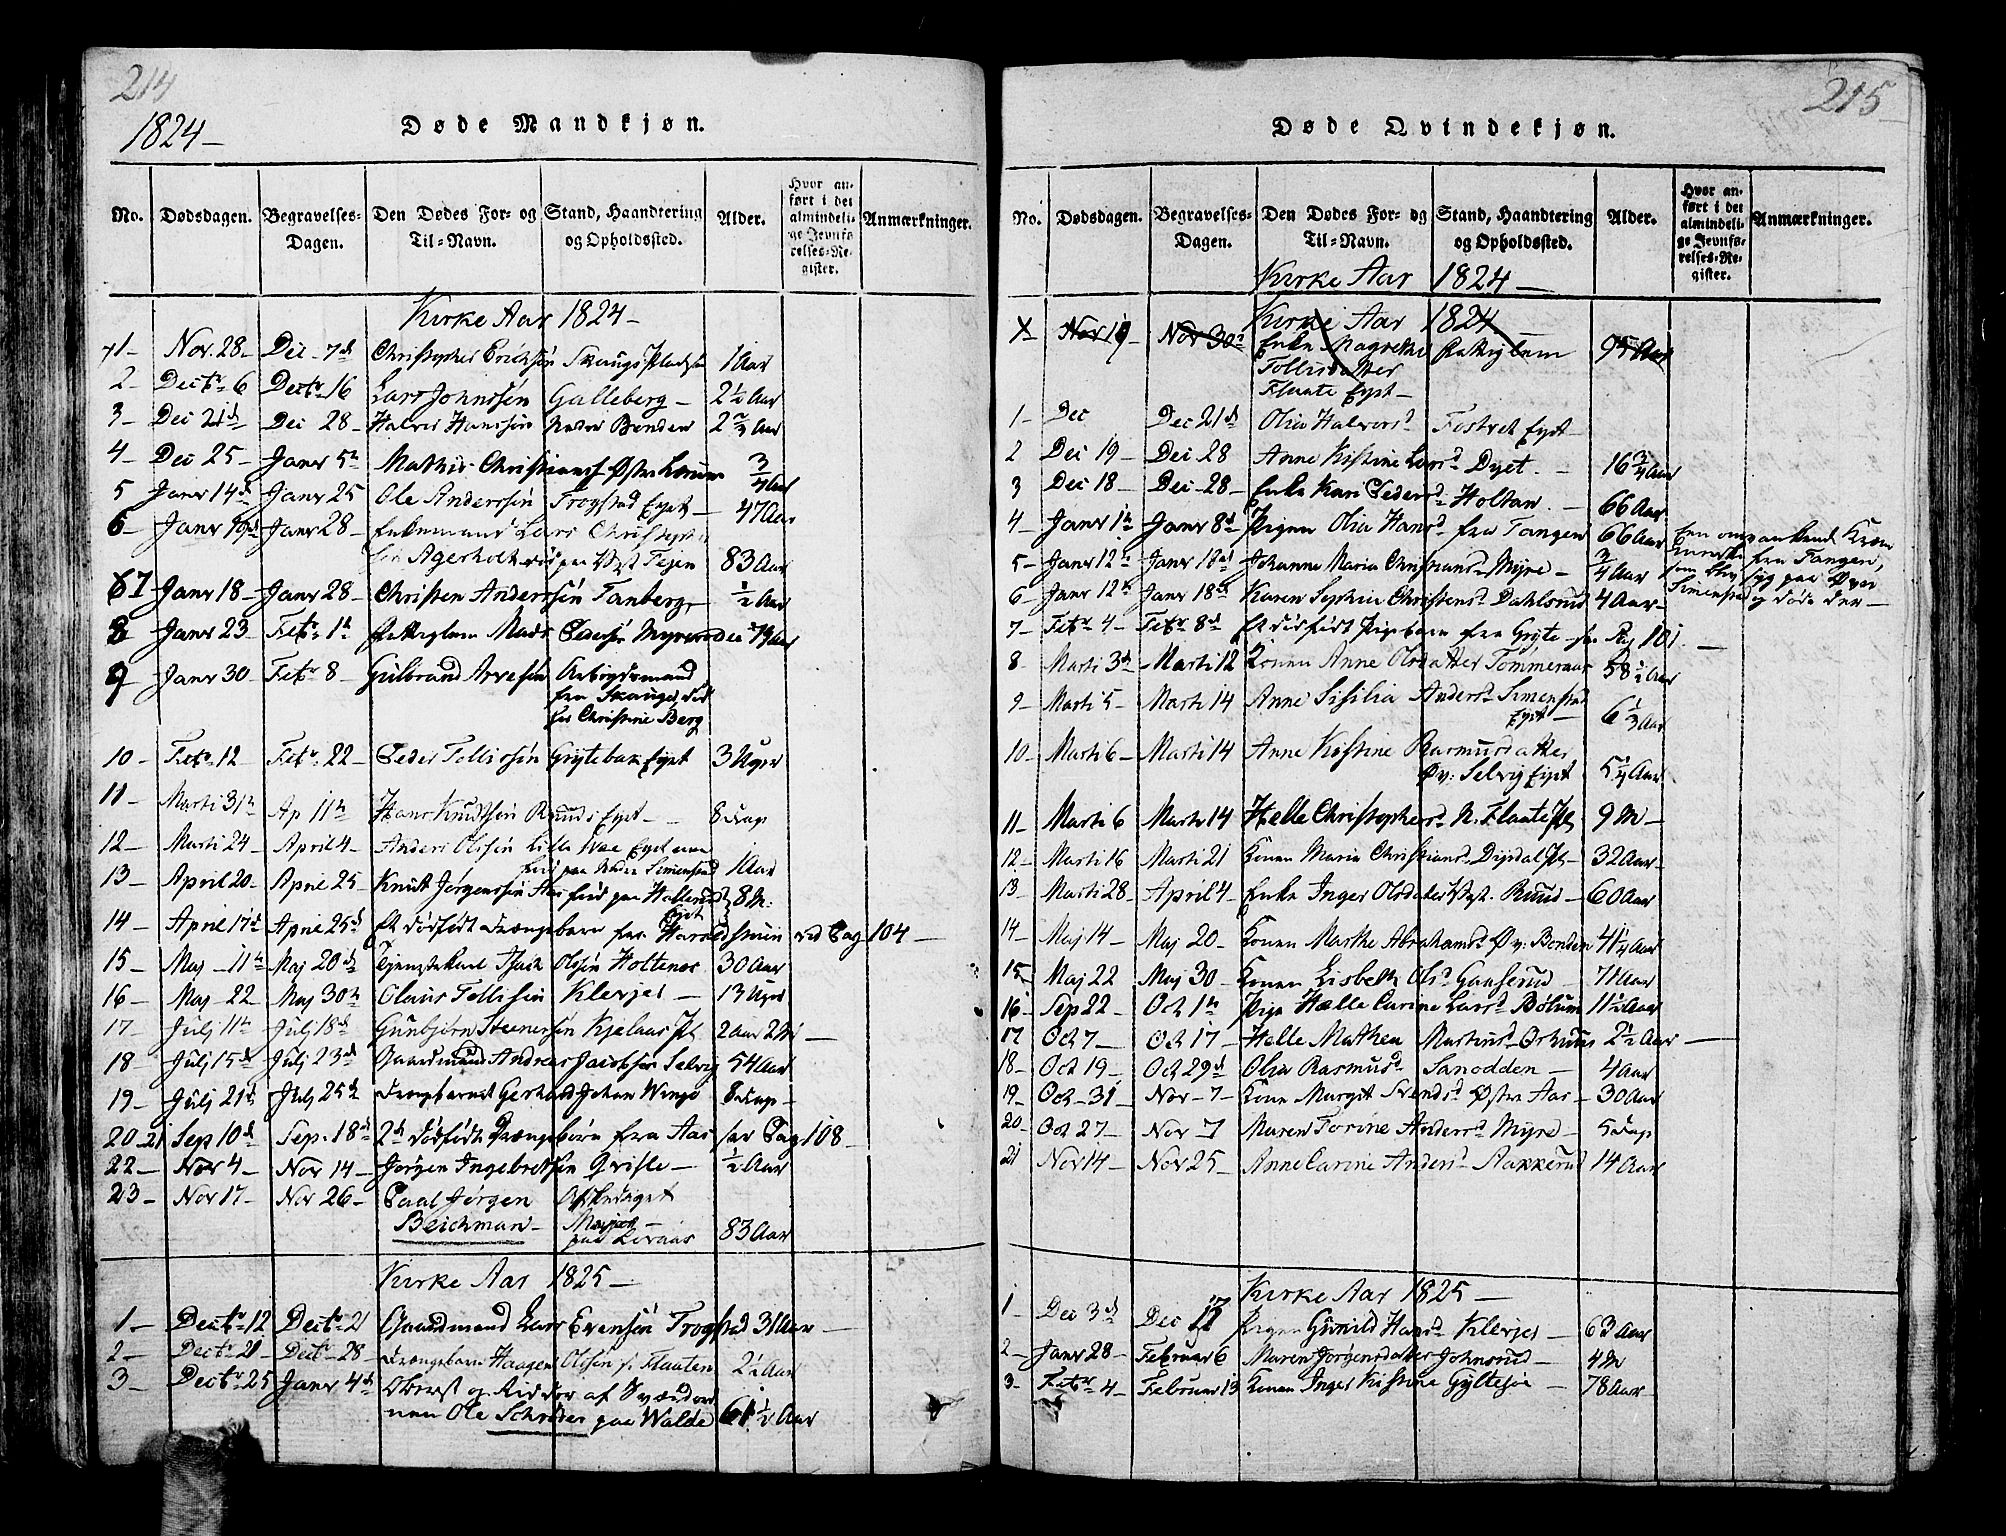 214
1824 –
Døde Mandkjøn.
No. Dødsdagen. Begravelses-Dagen. Den Dødes For- og Til-Navn. Stand, Haandtering og Opholdssted. Alder. Hvor anført i det almindelige Jevnførelses-Register. Anmærkninger.
Kirke Aar 1824 –
1 – Nov. 28 – Dec – 7d Christopher Erichsen Skaugs Pladsen 1 Aar
2 – Dectr 6 Dectr 16 Lars Johnssen Galleberg – 2 1/2 Aar
3 – Dec 21d Dec 28 – Halvor Hanssen Bonden
4 – Dec 25 – Janr 5t Mathis Christians 3/4 Aar
5 Janr 14d Janr 25 Ole Anderssen Trogstad Eyet – 47 Aar
6 – Janr 19d Janr 28 – Enkemand Lars Christoph
Agerholt død paa Fegen 83 Aar
7 Janr 18 – Janr 28 – Christen Anderssen Tanberg – 1/2 Aar
8 Janr 23 – Febr – 1t Mads Pedersen
9 Janr 30 Febr 8 – Gulbrand Arvesen
fra Skauge død
hos Christine Berg
10 – Febr 12 Febr – 22 – Peder Tollefsen Grytebak Eyet 3 Uger
11 – Marti 31t Ap 11t Hans Knudssen Ruuds Eyet – 8 Dage
12 – Marti 24 – April 4 – Anders Olssen Lille Eyet
fød paa Simenstad 1 Aar
13 – April 20 – April 25 Knut Jørgenssen Aas fød paa Hallerud 8 M:
Eyet
14 – April 17d April 25d Et dødfødt Drængebarn fra Harald vid Pag 104 –
15 – Maj – 11t Maj 20d Tjenstekarl Isach Olssen Holtenes 30 Aar
16 – Maj 22 Maj 30t Olaus Tollefsen Klevjer – 13 Uger
17 – Julj 11t Julj 18d Gunbjørn Steenersen Kjelaas Pl 2 Aar 2 M –
18 Julj 15d Julj 23d Gaardmand Andreas Jacobsen Selvig 54 Aar
19 – Julj 21d Julj 25d Drengbarnet Gerhard Johan Winge 8 Dage –
20 – 21 Sep 10d Sep. 18d 2d dødfødte Drængebørn fra Aas Pag 108 –
22 – Nov 4 – Nov 14 – Jørgen Ingebretsen Qvisle – 1/2 Aar
23 – Nov 17 – Nov 26 – Paal Jørgen Afskediget
Beichman – Major –
paa 83 Aar
Kirke Aar 1825 –
1 – Dectr 12 Dectr 21 Gaardmand Lars Evensen Trogstad 31 Aar –
2 – Dectr 21 – Dectr 28 – Drængebarn Haagen Olssen 2 1/2 Aar
3 – Dectr 25 Janr 4d Oberst og Ridder af Sværdor
nen Ole Schrøder paa Walde 61 1/2 Aar
215
Døde Qvindekjøn.
No. Dødsdagen. Begravelses-Dagen. Den Dødes For- og Til-Navn. Stand, Haandtering og Opholdssted. Alder. Hvor anført i det almindelige Jevnførelses-Register. Anmærkninger.
Kirke Aar 1824 –
Kirke Aar 1824
Nov 19 – Nov 30t Enke Magrethe 95 Aar
Tollefsdatter
Flaate Eyet –
1 – Dec Dec 21d Olia Halvorsd Eyet –
2 Dec 19 – Dec 28 Anne Kistine Larsd Dyet. – 16 3/4 Aar
3 Dec 18 – Dec – 28 – Enke Kari Pedersd Holtan. – 66 Aar
4 – Janr 1t Janr 8d Pigen Olia Hansd fra Tangen 66 Aar
Een omvankende
fra Tangen,
som blev syg paa Øvre
Simenstad og døde der –
5 – Janr 12t Janr 18d Johanne Maria Christiansd Myre – 3/4 Aar
6 – Janr 12t Janr 18d Karen Sophia Christensd Dahlsrud 4 Aar –
7 – Febr 4 – Febr 8d Et dødfødt Pigebarn fra Gryte – Pag 101. –
8 – Marti 3d Marti 12 Konen Anne Olsdatter Tommeraas 58 1/2 Aar
9 – Marti 5 – Marti 14 Anne Sisilia Andersd Simenstad
Eyet – 6 1/3 Aar
10 – Marti 6 – Marti 14 Anne Kistine Rasmusdatter
Øv: Selvig Eyet 5 1/4 Aar
11 – Marti 6 Marti 14 Helle Christophersd N. Flaate Pl 9 M –
12 – Marti 16 Marti 21 Konen Maria Christiansd Dysdal Pl – 32 Aar –
13 – Marti 28 April 4 Enke Inger Olsdatter Vest. Ruud – 60 Aar
14 – Maj 14 – Maj 20 – Konen Marthe Abrahamsd Øv: Bonden 41 1/4 Aar
15 – Maj 22 Maj 30 Konen Lisbeth Olsd Gauserud – 71 Aar
16 – Sep 22 Oct 1t Pige Helle Carine Larsd Bølum 11 1/2 Aar
17 Oct 7 – Oct 17 – Helle Mathea Martinsd 2 1/2 Aar –
18 – Oct 19 – Oct 29d Olia Rasmusd Sanodden – 4 Aar
19 – Oct – 31 – Nov – 7 – Kone Margit Svendsd Østre Aas – 30 Aar
20 – Oct 27 – Nov 7 Maren Torine Andersd Myre – 5 Dage
21 Nov 14 – Nov 25 – Anne Carine Andersd Aakkerud 14 Aar
Kirke Aar 1825 –
1 – Dec 3d Dec 12 Pigen Gunild Hansd Klevjer – 63 Aar
2 – Janr 28 – Februar 6 Maren Jørgensdatter Johnsrud – 4 M
3 – Febr 4 – Februar 13 Konen Inger Kistine Gyltesøe – 78 Aar